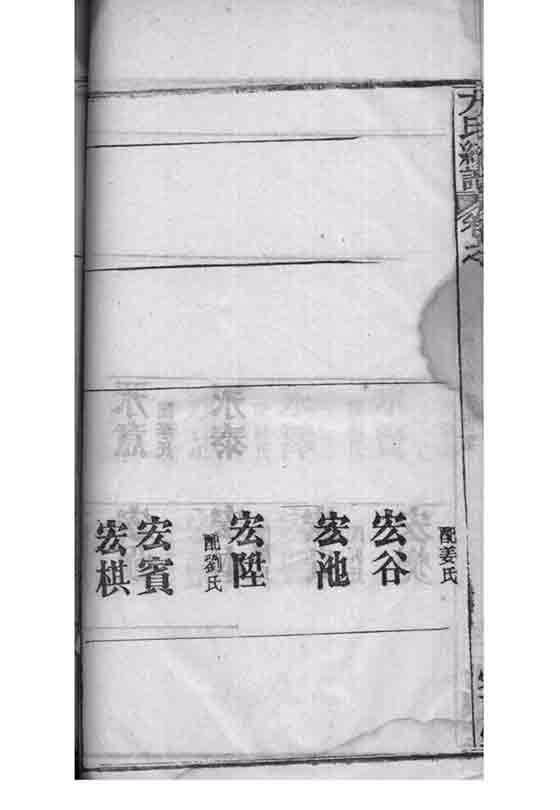 氏
譜
卷之
配姜氏
宏谷
宏池
宏陞
配劉氏
宏賓
宏棋